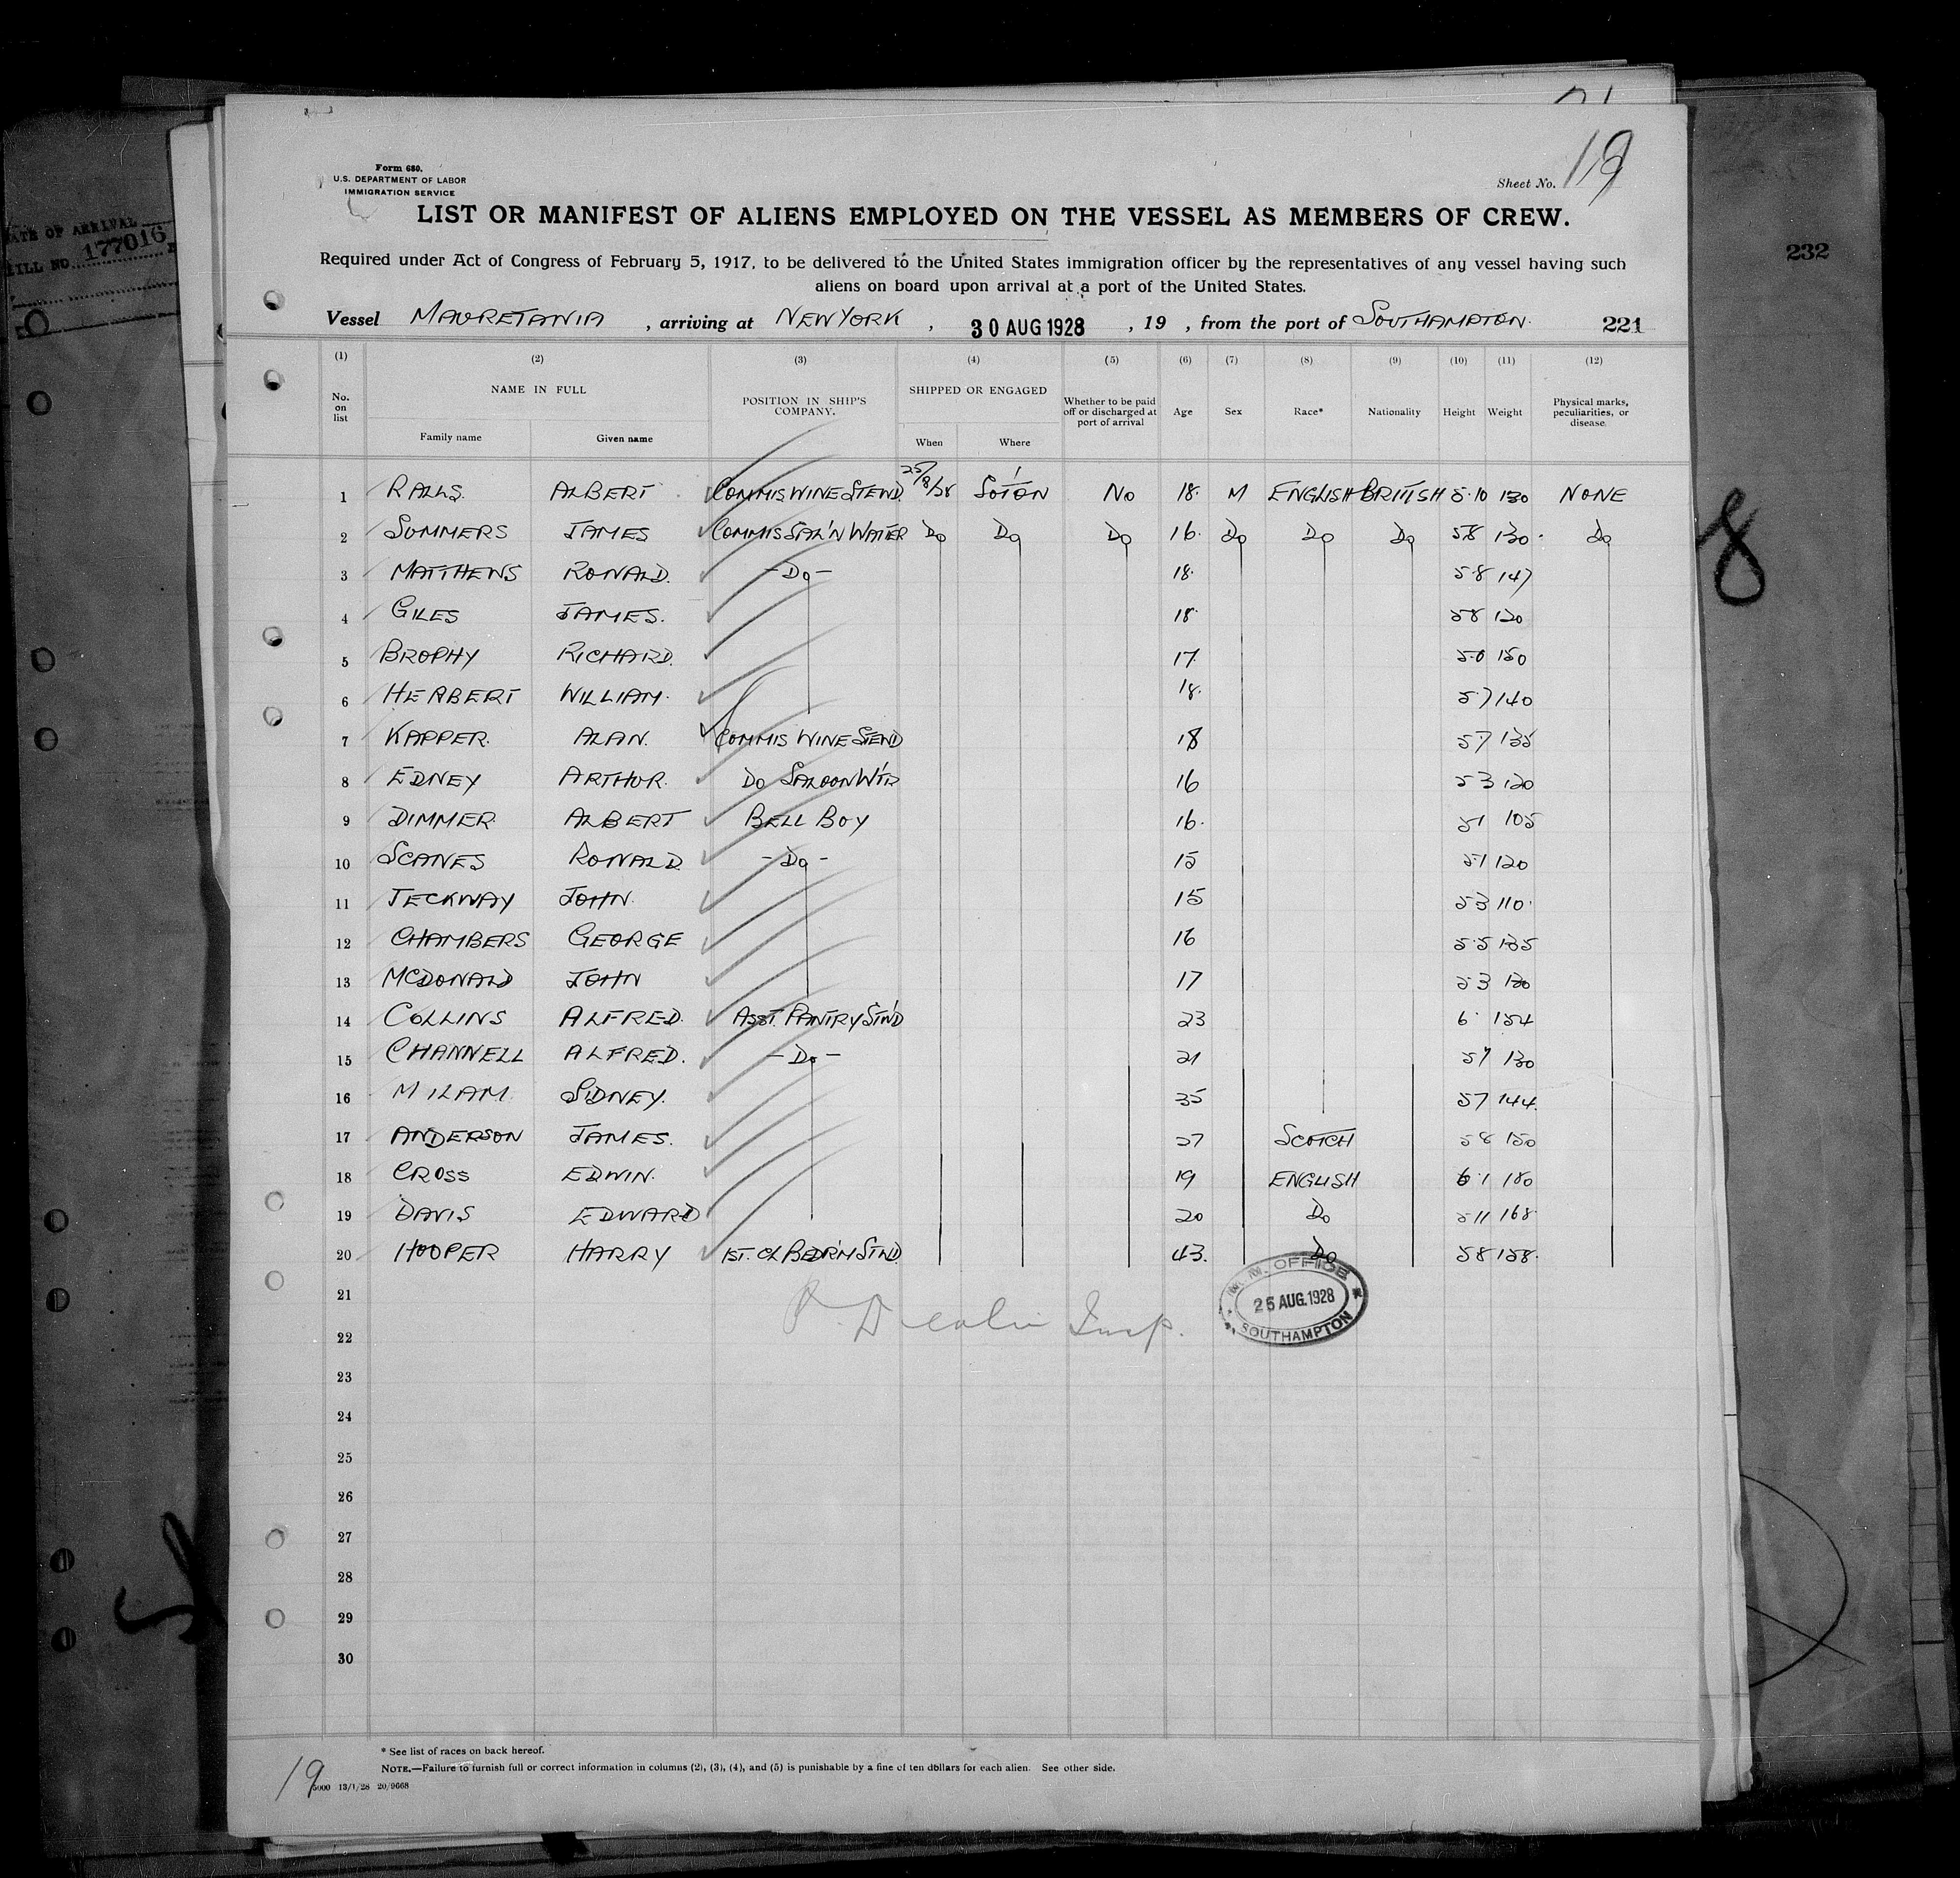 DATE OF ARRIVAL
177016
232
Form 680,
U.S. DEPARTMENT OF LABOR
IMMIGRATION SERVICE
Sheet No. 19
LIST OR MANIFEST OF ALIENS EMPLOYED ON THE VESSEL AS MEMBERS OF CREW.
Required under Act of Congress of February 5, 1917, to be delivered to the United States immigration officer by the representatives of any vessel having such
aliens on board upon arrival at a port of the United States.
Vessel MAURETANIA, arriving at NEW YORK, 30 AUG 1928, 19 , from the port of SOUTHAMPTON. 221
(1) (2) (3) (4) (5) (6) (7) (8) (9) (10) (11) (12)
No. on list NAME IN FULL POSITION IN SHIP'S COMPANY. SHIPPED OR ENGAGED Whether to be paid off or discharged at port of arrival Age Sex Race* Nationality Height Weight Physical marks, peculiarities, or disease.
Family name Given name When Where
1 RALLS. ALBERT COMMIS WINE STEWD. 25/8/28 SOTON NO 18. M ENGLISH BRITISH 5.10 130 NONE
2 SUMMERS JAMES COMMIS SAL'N WAITER Do Do Do 16. Do Do Do 58 130. do
3 MATTHEWS RONALD. -Do- 18. 5.8 147
4 GILES JAMES. 18 58 120
5 BROPHY RICHARD. 17. 5.0 150
6 HERBERT WILLIAM. 18. 5.7 140
7 KAPPER. ALAN. COMMIS WINE STEWD 18 57 135
8 EDNEY ARTHUR. DO SALOON WTR 16 53 120
9 DIMMER ALBERT BELL BOY 16. 51 105
10 SCANES RONALD. -Do- 15 5.1 120
11 JECKWAY JOHN. 15 53 110.
12 CHAMBERS GEORGE 16 5.5 135
13 MCDONALD JOHN 17 53 120
14 COLLINS ALFRED. ASST. PANTRY ST'WD 23 6. 154
15 CHANNELL ALFRED. -Do- 21 57 130
16 MILAM. SIDNEY. 35 57 144.
17 ANDERSON JAMES. 27 SCOTCH 58 150
18 CROSS EDWIN. 19 ENGLISH 6.1 180
19 DAVIS EDWARD 20 Do 511 168
20 HOOPER HARRY 1ST. CL BEDR'M STWD. 43. Do 58 158.
21
OFFICE
25 AUG. 1928
SOUTHAMPTON
Insp.
22
23
24
25
26
27
28
29
30
* See list of races on back hereof.
NOTE.—Failure to furnish full or correct information in columns (2), (3), (4), and (5) is punishable by a fine of ten dollars for each alien. See other side.
19
5000 13/1/28 20/9668